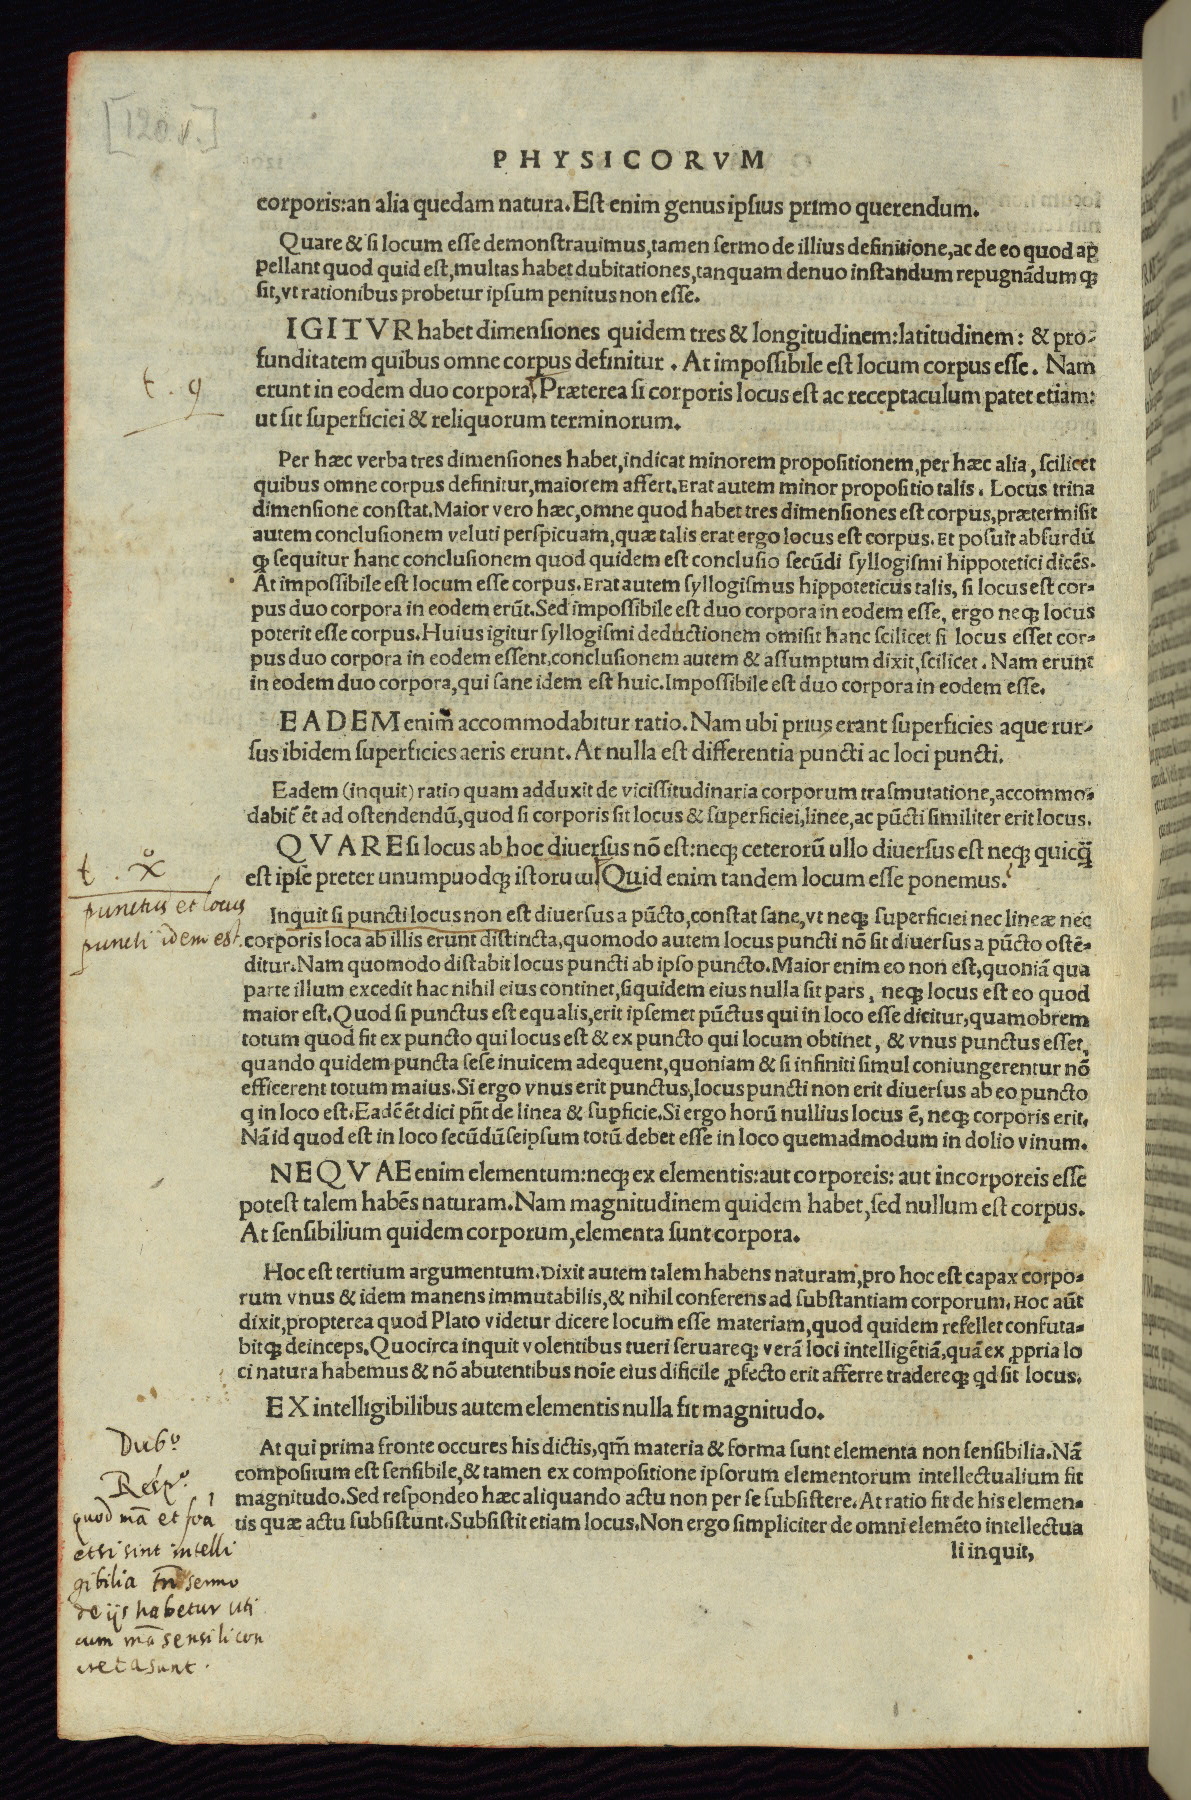 [120.v.]
PHYSICORVM
corporis:an alia quedam natura.Est enim genus ipsius primo querendum.
Quare & si locum esse demonstrauimus,tamen sermo de illius definitione,ac de eo quod ap
pellant quod quid est,multas habet dubitationes,tanquam denuo instandum repugnãdumqꝫ
sit,vt rationibus probetur ipsum penitus non esse.
IGITVR habet dimensiones quidem tres & longitudinem:latitudinem: & pro-
funditatem quibus omne corpus definitur. At impossibile est locum corpus esse. Nam
t. 9
erunt in eodem duo corpora. Præterea si corporis locus est ac receptaculum patet etiam:
ut sit superficiei & reliquorum terminorum.
Per hæc verba tres dimensiones habet,indicat minorem propositionem,per hæc alia, scilicet
quibus omne corpus definitur,maiorem affert.Erat autem minor propositio talis. Locus trina
dimensione constat.Maior vero hæc,omne quod habet tres dimensiones est corpus,prætermisit
autem conclusionem veluti perspicuam,quæ talis erat ergo locus est corpus.Et posuit absurdũ
ꝙ sequitur hanc conclusionem quod quidem est conclusio secũdi syllogismi hippotetici dicẽs.
At impossibile est locum esse corpus.Erat autem syllogismus hippoteticus talis, si locus est cor-
pus duo corpora in eodem erũt.Sed impossibile est duo corpora in eodem esse, ergo neqꝫ locus
poterit esse corpus.Huius igitur syllogismi deductionem omisit hanc scilicet si locus esset cor-
pus duo corpora in eodem essent,conclusionem autem & assumptum dixit,scilicet. Nam erunt
in eodem duo corpora,qui sane idem est huic.Impossibile est duo corpora in eodem esse.
EADEM enim accommodabitur ratio.Nam ubi prius erant superficies aque rur-
sus ibidem superficies aeris erunt.At nulla est differentia puncti ac loci puncti.
Eadem (inquit) ratio quam adduxit de vicissitudinaria corporum trasmutatione,accommo-
dabiť ẽt ad ostendendũ,quod si corporis sit locus & superficiei,linee,ac pũcti similiter erit locus.
QVARE si locus ab hoc diuersus nõ est:neqꝫ ceterorũ ullo diuersus est neqꝫ quicq̃
t. xº
est ipse preter unumpuodqꝫ istorum Quid enim tandem locum esse ponemus.
punctus et locus
puncti idem est.
Inquit si puncti locus non est diuersus a pũcto,constat sane,vt neqꝫ superficiei nec lineæ nec
corporis loca ab illis erunt distincta,quomodo autem locus puncti nõ sit diuersus a pũcto ostẽ-
ditur.Nam quomodo distabit locus puncti ab ipso puncto.Maior enim eo non est,quoniã qua
parte illum excedit hac nihil eius continet,siquidem eius nulla sit pars, neqꝫ locus est eo quod
maior est.Quod si punctus est equalis,erit ipsemet pũctus qui in loco esse dicitur,quamobrem
totum quod fit ex puncto qui locus est & ex puncto qui locum obtinet, & vnus punctus esset,
quando quidem puncta sese inuicem adequent,quoniam & si infiniti simul coniungerentur nõ
efficerent totum maius.Si ergo vnus erit punctus,locus puncti non erit diuersus ab eo puncto
q̇ in loco est.Eadẽ ẽt dici pñt de linea & sup̱ficie.Si ergo horũ nullius locus ẽ, neqꝫ corporis erit.
Nã id quod est in loco secũdũ seipsum totũ debet esse in loco quemadmodum in dolio vinum.
NEQVAE enim elementum:neqꝫ ex elementis:aut corporeis: aut incorporeis esse
potest talem habẽs naturam.Nam magnitudinem quidem habet,sed nullum est corpus.
At sensibilium quidem corporum,elementa sunt corpora.
Hoc est tertium argumentum.Dixit autem talem habens naturam,pro hoc est capax corpo-
rum vnus & idem manens immutabilis,& nihil conferens ad substantiam corporum.Hoc aũt
dixit,propterea quod Plato videtur dicere locum esse materiam,quod quidem refellet confuta-
bitqꝫ deinceps.Quocirca inquit volentibus tueri seruareqꝫ: verã loci intelligẽtiã,quã ex ꝓpria lo
ci natura habemus & nõ abutentibus noĩe eius dificile ꝓfecto erit afferre tradereqꝫ qd sit locus.
EX intelligibilibus autem elementis nulla fit magnitudo.
At qui prima fronte occures his dictis,qm̃ materia & forma sunt elementa non sensibilia.Nã
compositum est sensibile,& tamen ex compositione ipsorum elementorum intellectualium fit
magnitudo.Sed respondeo hæc aliquando actu non per se subsistere.At ratio fit de his elemen-
tis quæ actu subsistunt.Subsistit etiam locus.Non ergo simpliciter de omni elemẽto intellectua
li inquit,
Dubº
Respº
quod mã et foã
etsi sint intelli
gibilia tñ sermo
de ijs habetur uti
cum mã sensili con
creta sunt.